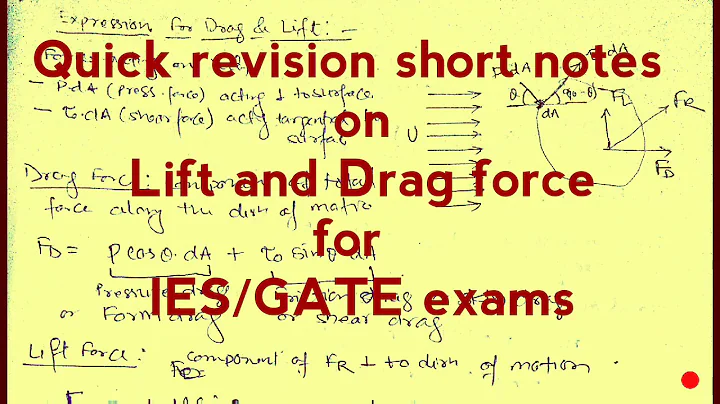 Expression for Drag & Lift:-
Quick revision short notes
- P.dA (press. force) acting ⊥ to surface
on
- τ.dA (shear force) acting tangential
surface
Lift and Drag force
Drag Force: component of total
force along the dirn of motion
for
F_D = P cos θ.dA + τo sin θ dA
IES/GATE exams
Pressure drag
or Form drag or shear drag
Lift Force: component of F_R ⊥ to dirn of motion.
P.dA
dA
θ
(90-θ)
dA
U
F_L
F_R
F_D